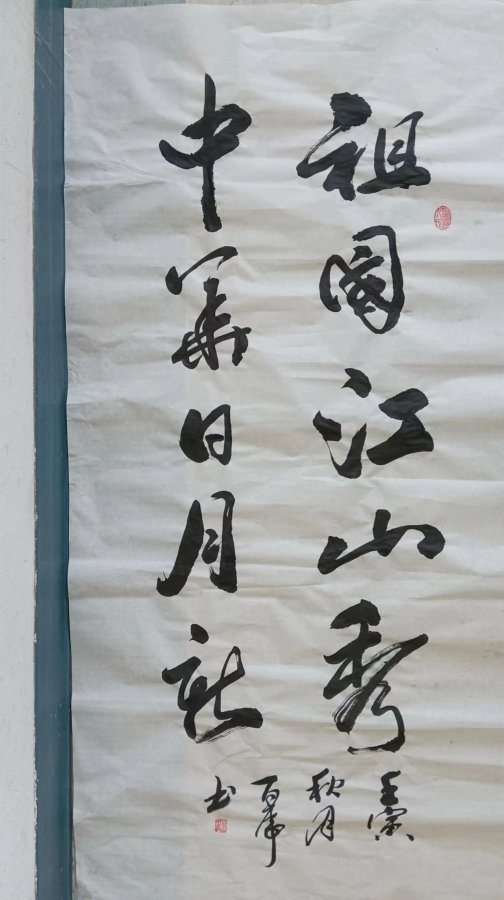 祖國江山秀
中華日月新
壬寅
秋月
书